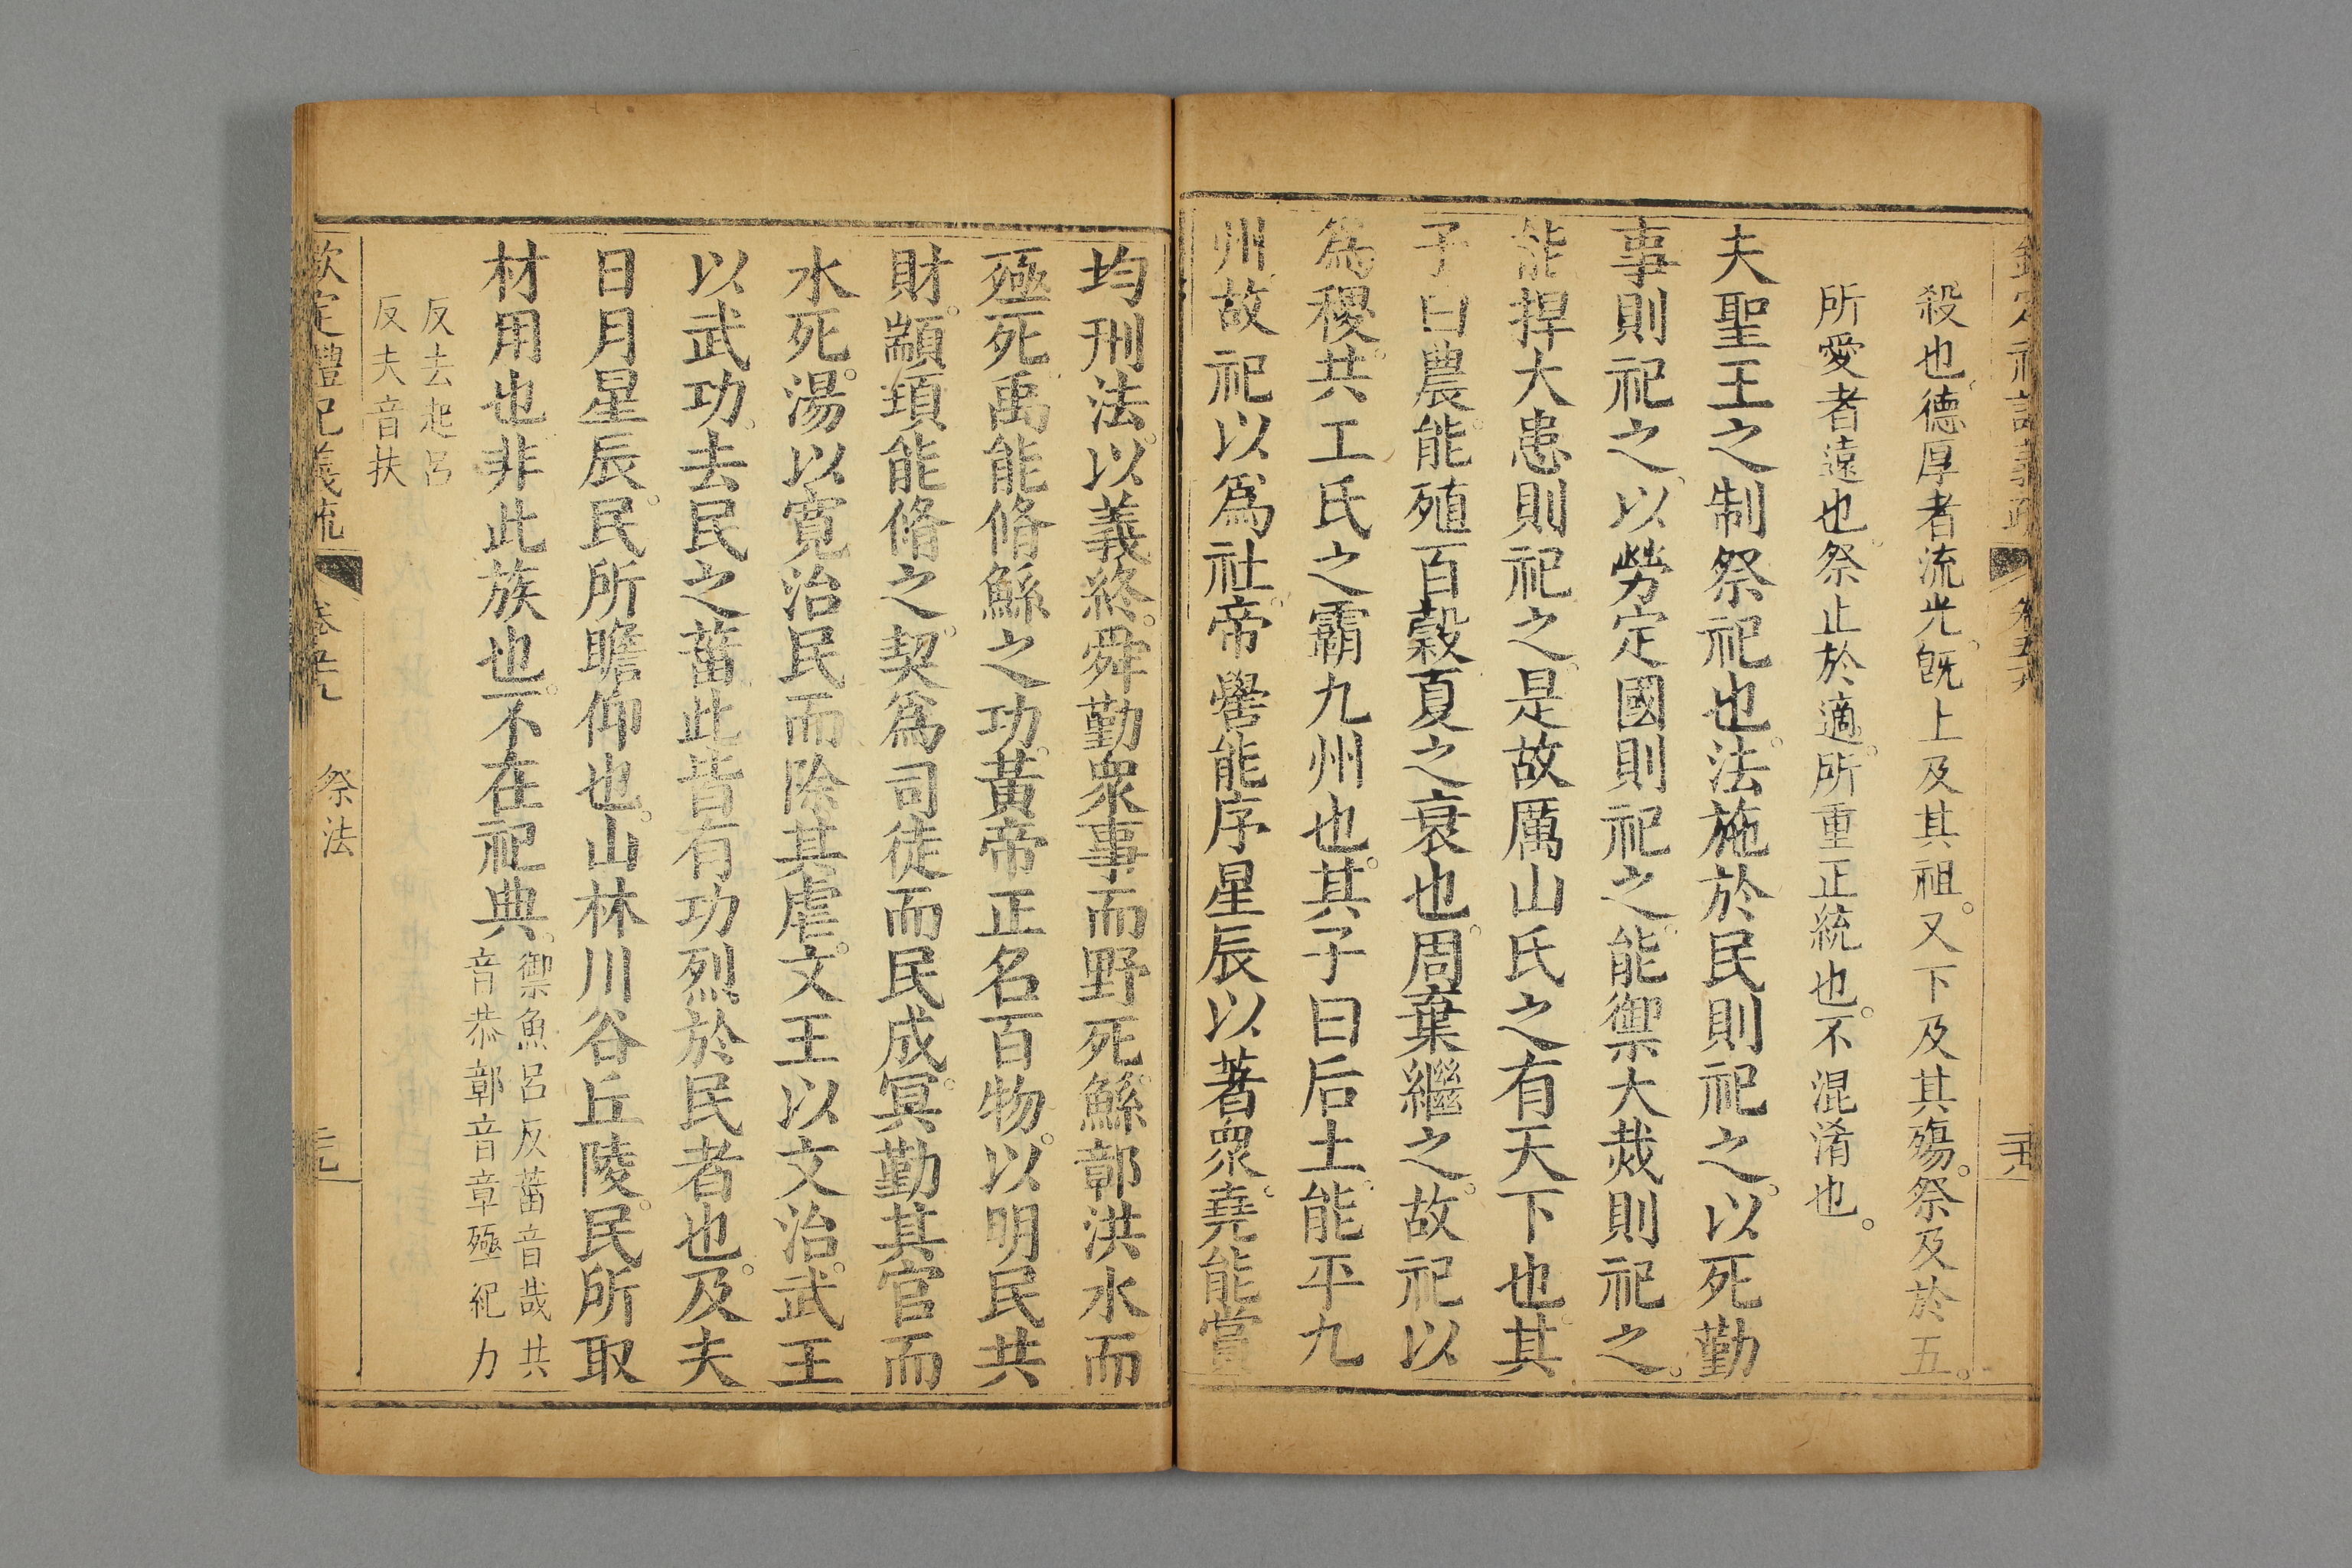 殺也德厚者流光旣上及其祖又下及其殤祭及於五
所愛者遠也祭止於適所重正統也不混淆也
夫聖王之制祭祀也法施於民則祀之以死勤
事則祀之以勞定國則祀之能禦大烖則祀之
能捍大患則祀之是故厲山氏之有天下也其
子曰農能殖百穀夏之衰也周棄繼之故祀以
爲稷共工氏之霸九州也其子曰后土能平九
州故祀以爲社帝嚳能序星辰以著衆堯能賞
均刑法以義終舜勤衆事而野死鯀鄣洪水而
殛死禹能脩鯀之功黃帝正名百物以明民共
財顓頊能脩之契爲司徒而民成冥勤其官而
水死湯以寬治民而除其虐文王以文治武王
以武功去民之菑此皆有功烈於民者也及夫
日月星辰民所瞻仰也山林川谷丘陵民所取
材用也非此族也不在祀典
禦魚呂反菑音哉共
音恭鄣音章殛紀力
反去起呂
反夫音扶
欽定禮記義疏
祭法